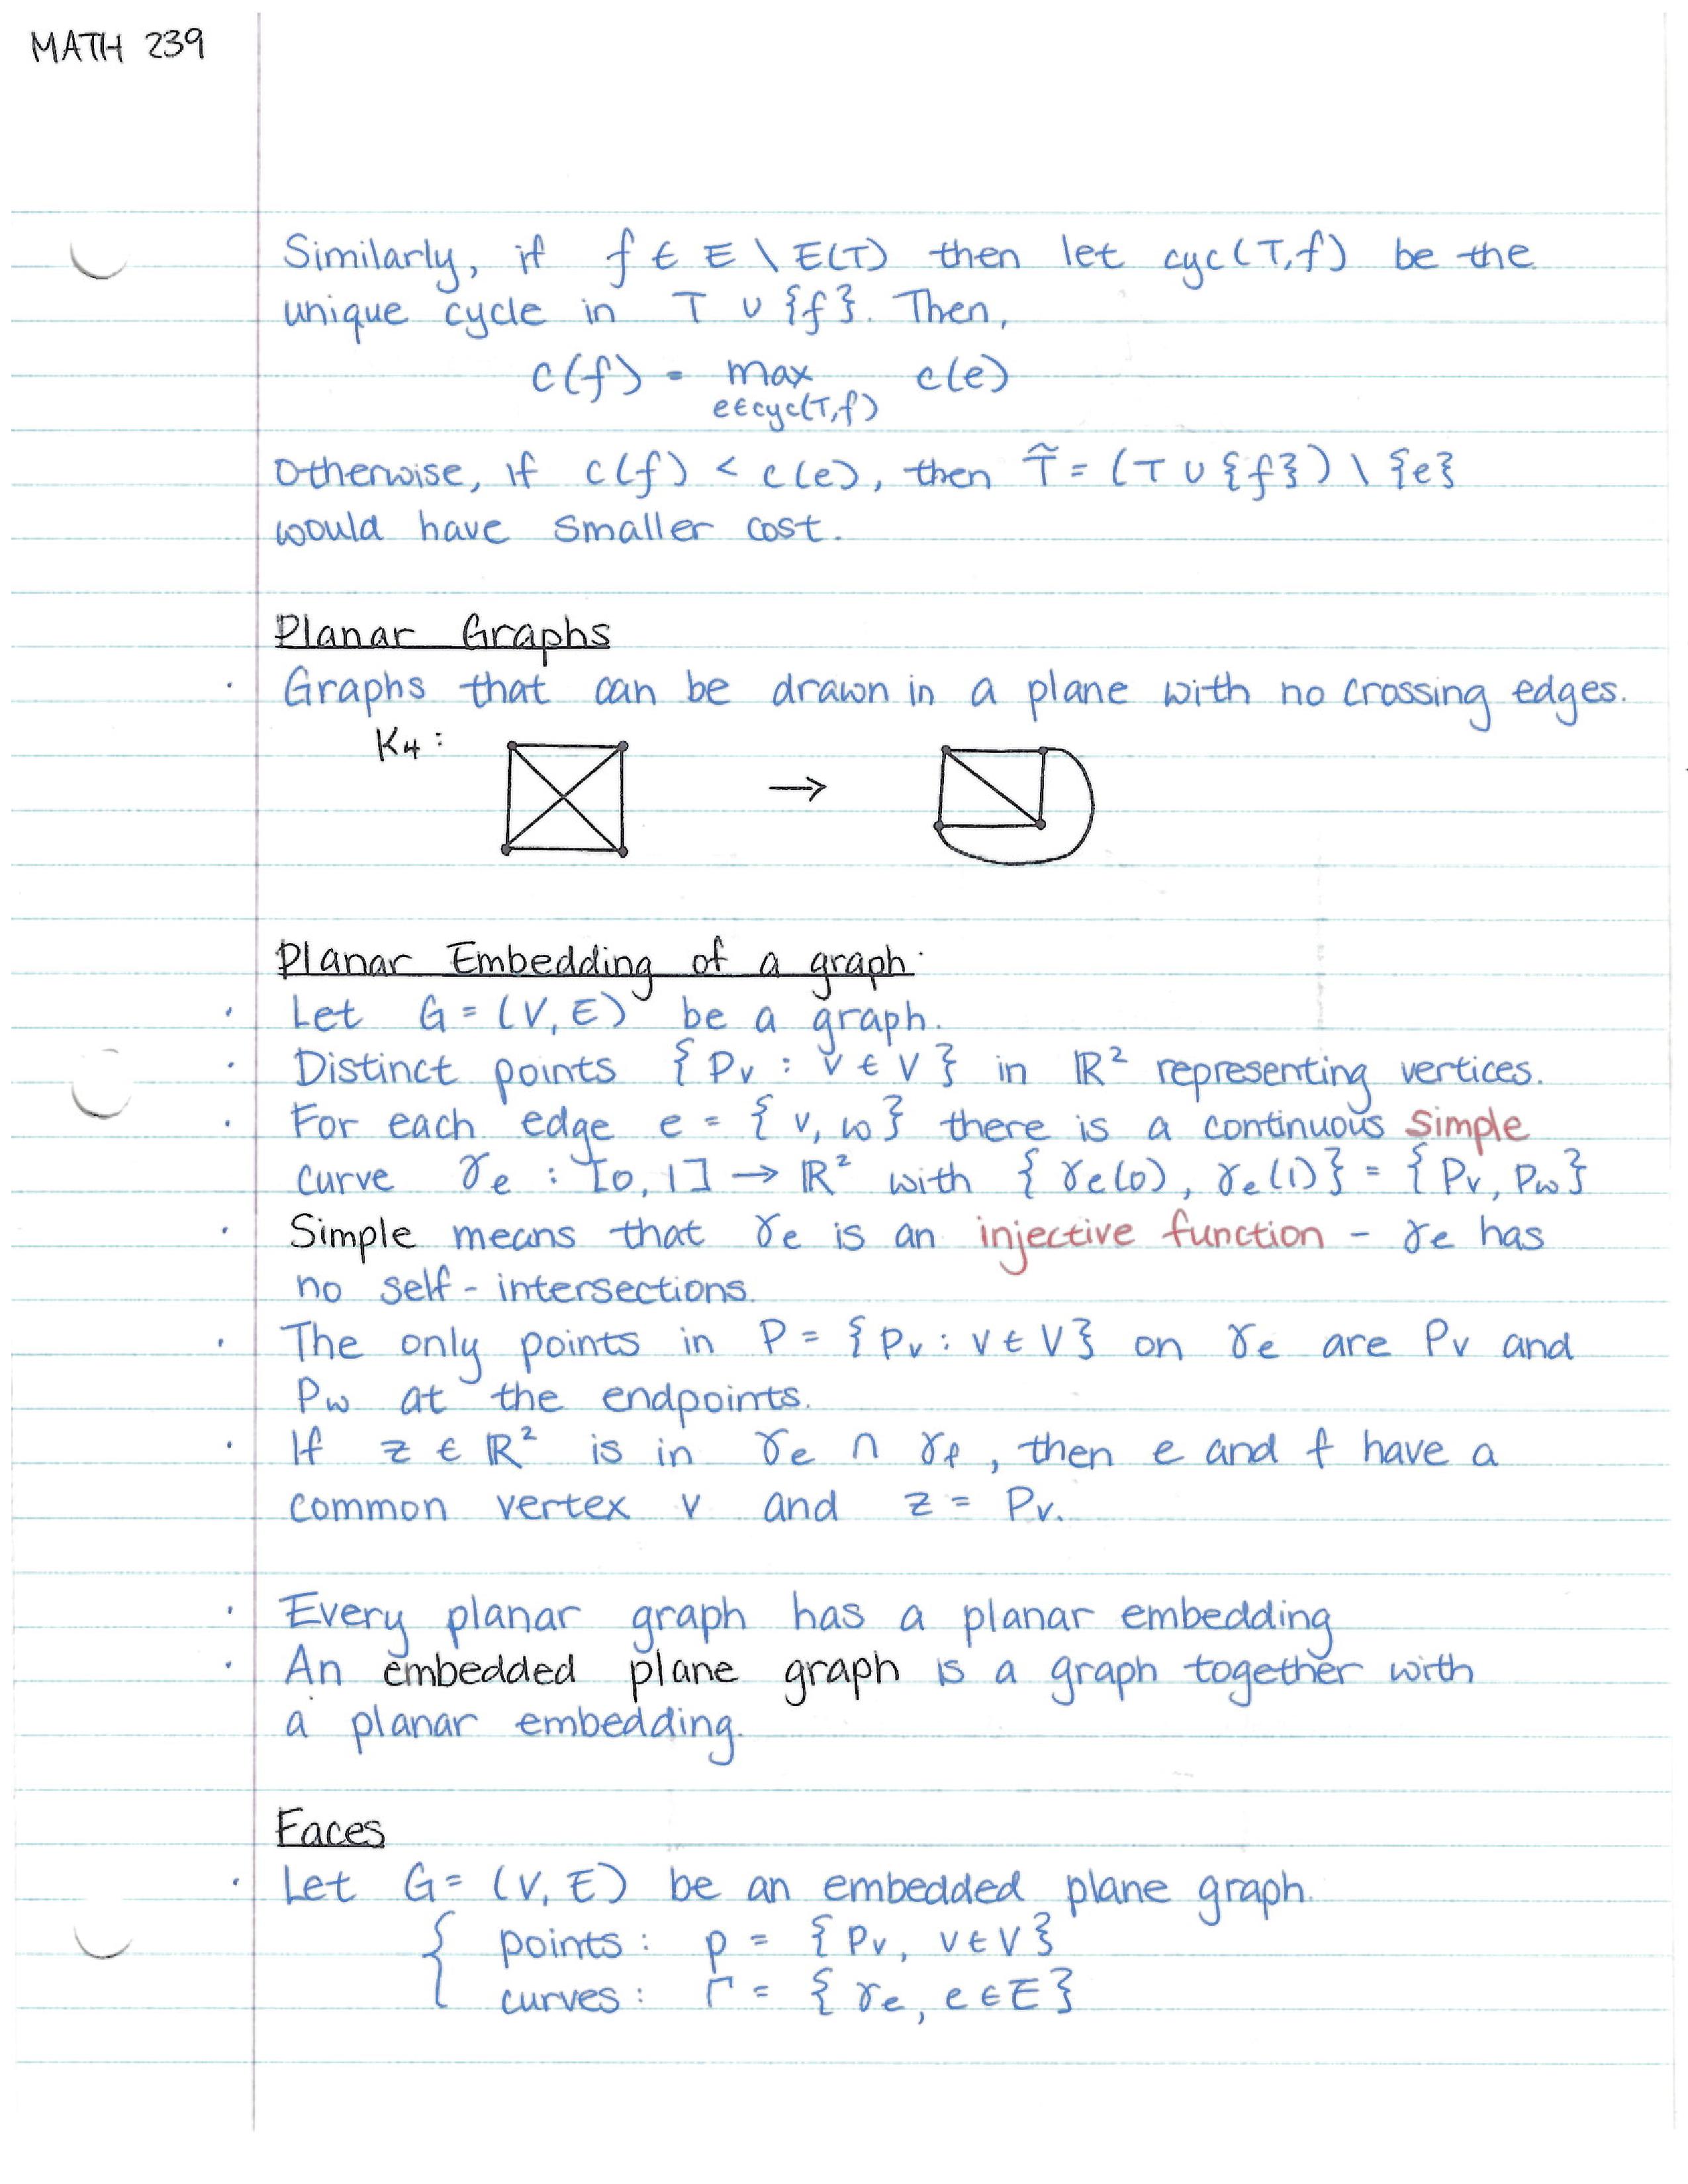 MATH 239
Similarly, if f ∈ E \ E(T) then let cyc(T,f) be the
unique cycle in T ∪ {f}. Then,
c(f) = max c(e)
e∈cyc(T,f)
Otherwise, if c(f) < c(e), then T̃ = (T ∪ {f}) \ {e}
would have smaller cost.
Planar Graphs
· Graphs that can be drawn in a plane with no crossing edges.
K4: →
Planar Embedding of a graph:
· Let G = (V, E) be a graph.
· Distinct points {Pv : v ∈ V} in ℝ² representing vertices.
· For each edge e = {v, w} there is a continuous simple
curve γe : [0, 1] → ℝ² with {γe(0), γe(1)} = {Pv, Pw}
· Simple means that γe is an injective function - γe has
no self-intersections.
· The only points in P = {Pv : v ∈ V} on γe are Pv and
Pw at the endpoints.
· If z ∈ ℝ² is in γe ∩ γf, then e and f have a
common vertex v and z = Pv.
· Every planar graph has a planar embedding
· An embedded plane graph is a graph together with
a planar embedding.
Faces
· Let G = (V, E) be an embedded plane graph.
{ points: p = {Pv, v∈V}
curves: Γ = {γe, e∈E}